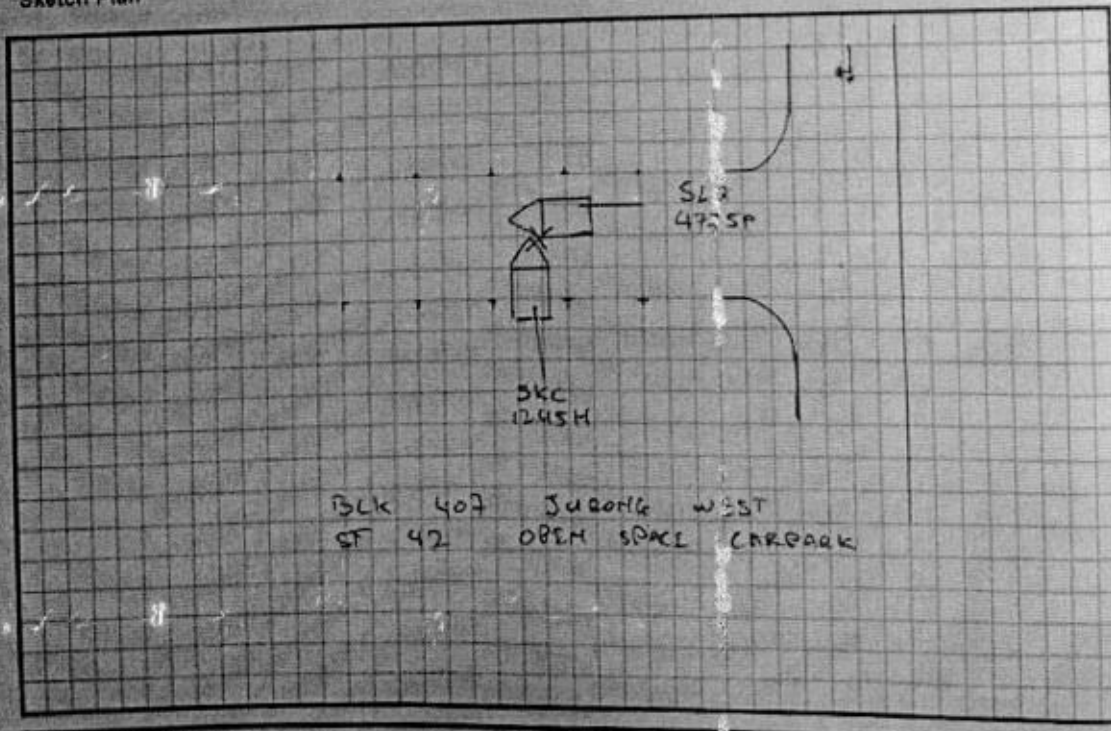 Sketch Plan
SKC
1245H
BLK 407 JURONG WEST
ST 42 OPEN SPACE CARPARK